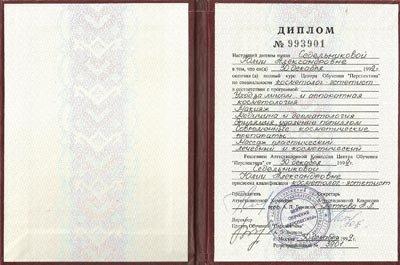 ДИПЛОМ
№ 993901
Настоящий диплом выдан Седельниковой
Юлии Александровне
в том, что он(а) 30 декабря 199
окончил(а) полный курс Центра Обучения "Перспектива"
по специальности косметолог-эстетист
в соответствии с программой:
Уход за лицом и аппаратная
косметология
Макияж
Медицина и дерматология
Эпиляция, удаление папиллом
Современные косметические
препараты
Массаж пластический
лечебный и косметический
Решением Аттестационной Комиссии Центра Обучения
"Перспектива" от 30 декабря 199
Седельниковой
Юлии Александровне
присвоена квалификация косметолог-эстетист
Председатель Секретарь
Аттестационной Комиссии Аттестационной Комиссии
Директор
Центра Обучения "Перспектива"
г. Москва 30 декабря 199
Регистрационный № 3901